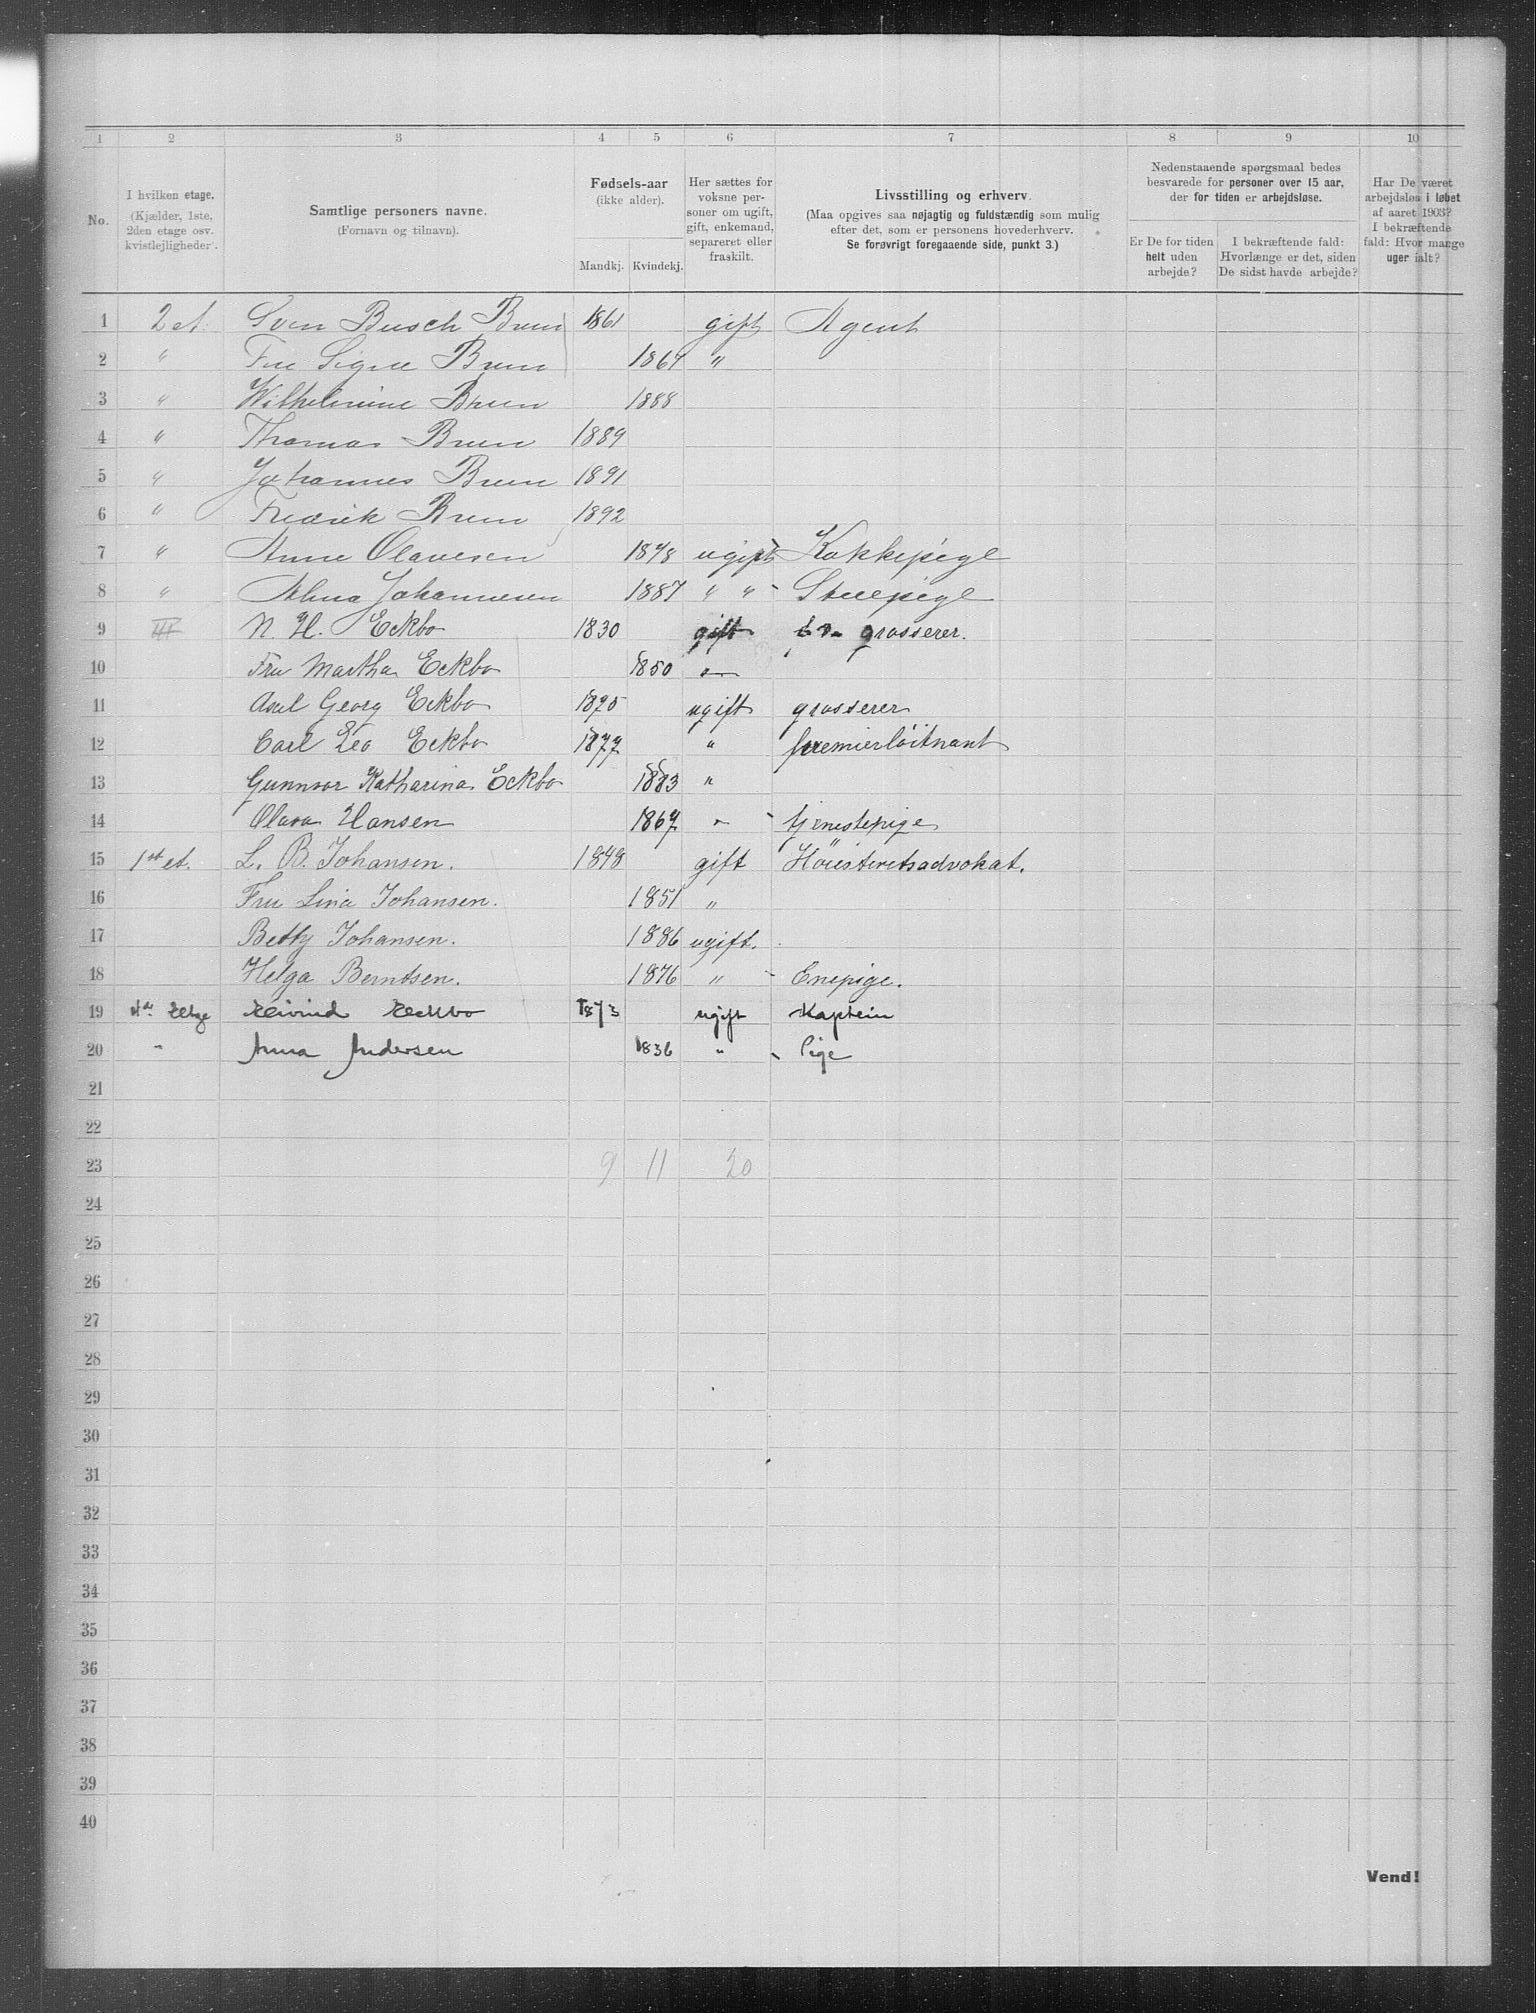 1 2 3 4 5 6 7 8 9 10
No. I hvilken etage. (Kjælder, 1ste, 2den etage osv. kvistlejligheder. Samtlige personers navne. (Fornavn og tilnavn). Fødsels-aar (ikke alder). Mandkj. Kvindekj. Her sættes for voksne personer om ugift, gift, enkemand, separeret eller fraskilt. Livsstilling og erhverv. (Maa opgives saa nøjagtig og fuldstændig som mulig efter det, som er personens hovederhverv. Se forøvrigt foregaaende side, punkt 3.) Nedenstaaende spørgsmaal bedes besvarede for personer over 15 aar, der for tiden er arbejdsløse. Er De for tiden helt uden arbejde? I bekræftende fald: Hvorlænge er det, siden De sidst havde arbejde? Har De været arbejdsløs i løbet af aaret 1903? I bekræftende fald: Hvor mange uger ialt?
1 2 et. Sven Busch Brun 1861 gift Agent
2 " Fru Signe Brun 1867 "
3 " Wilhelmine Brun 1888
4 " Thomas Brun 1889
5 " Johannes Brun 1891
6 " Fredrik Brun 1892
7 " Anne Olavesen 1848 ugift Kokkepige
8 " Alma Johannesen 1887 " " - Stuepige
9 III N. H. Eckbo 1830 gift grosserer.
10 Fru Martha Eckbo 1850 "
11 Axel Georg Eckbo 1875 ugift grosserer
12 Carl Leo Eckbo 1877 " premierløitnant
13 Gunnvor Katharina Eckbo 1883 "
14 Olava Hansen 1867 " - tjenestepige
15 1st et. L. B. Johansen. 1848 gift Höiesteretsadvokat.
16 Fru Lina Johansen. 1851 "
17 Betty Johansen. 1886 ugift.
18 Helga Berntsen. 1876 " - Enepige.
19 4de Etage Eivind Eckbo 1873 ugift Kaptein
20 " Anna Andersen 1836 " - Pige
21
22
23 9 11 20
24
25
26
27
28
29
30
31
32
33
34
35
36
37
38
39
40
Vend!